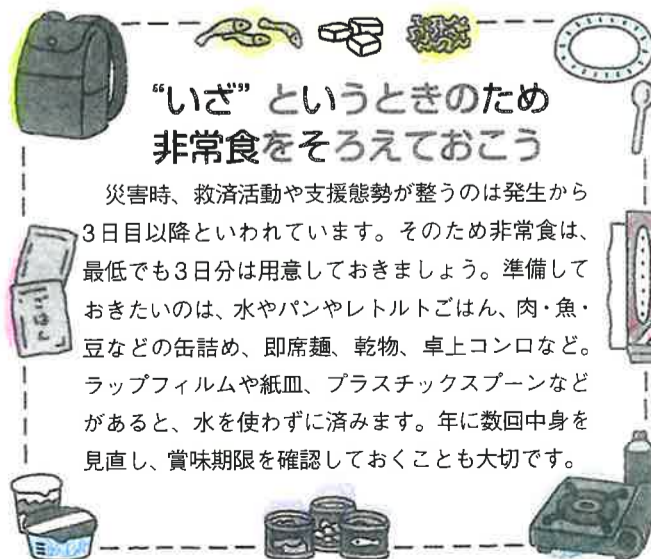 “いざ” というときのため
非常食をそろえておこう
災害時、救済活動や支援態勢が整うのは発生から
3日目以降といわれています。そのため非常食は、
最低でも3日分は用意しておきましょう。準備して
おきたいのは、水やパンやレトルトごはん、肉・魚・
豆などの缶詰め、即席麺、乾物、卓上コンロなど。
ラップフィルムや紙皿、プラスチックスプーンなど
があると、水を使わずに済みます。年に数回中身を
見直し、賞味期限を確認しておくことも大切です。